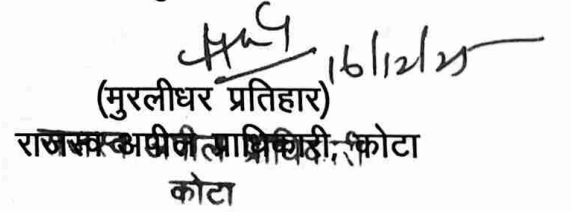 16/12/25
(मुरलीधर प्रतिहार)
राजस्व अपील प्राधिकारी, कोटा
कोटा